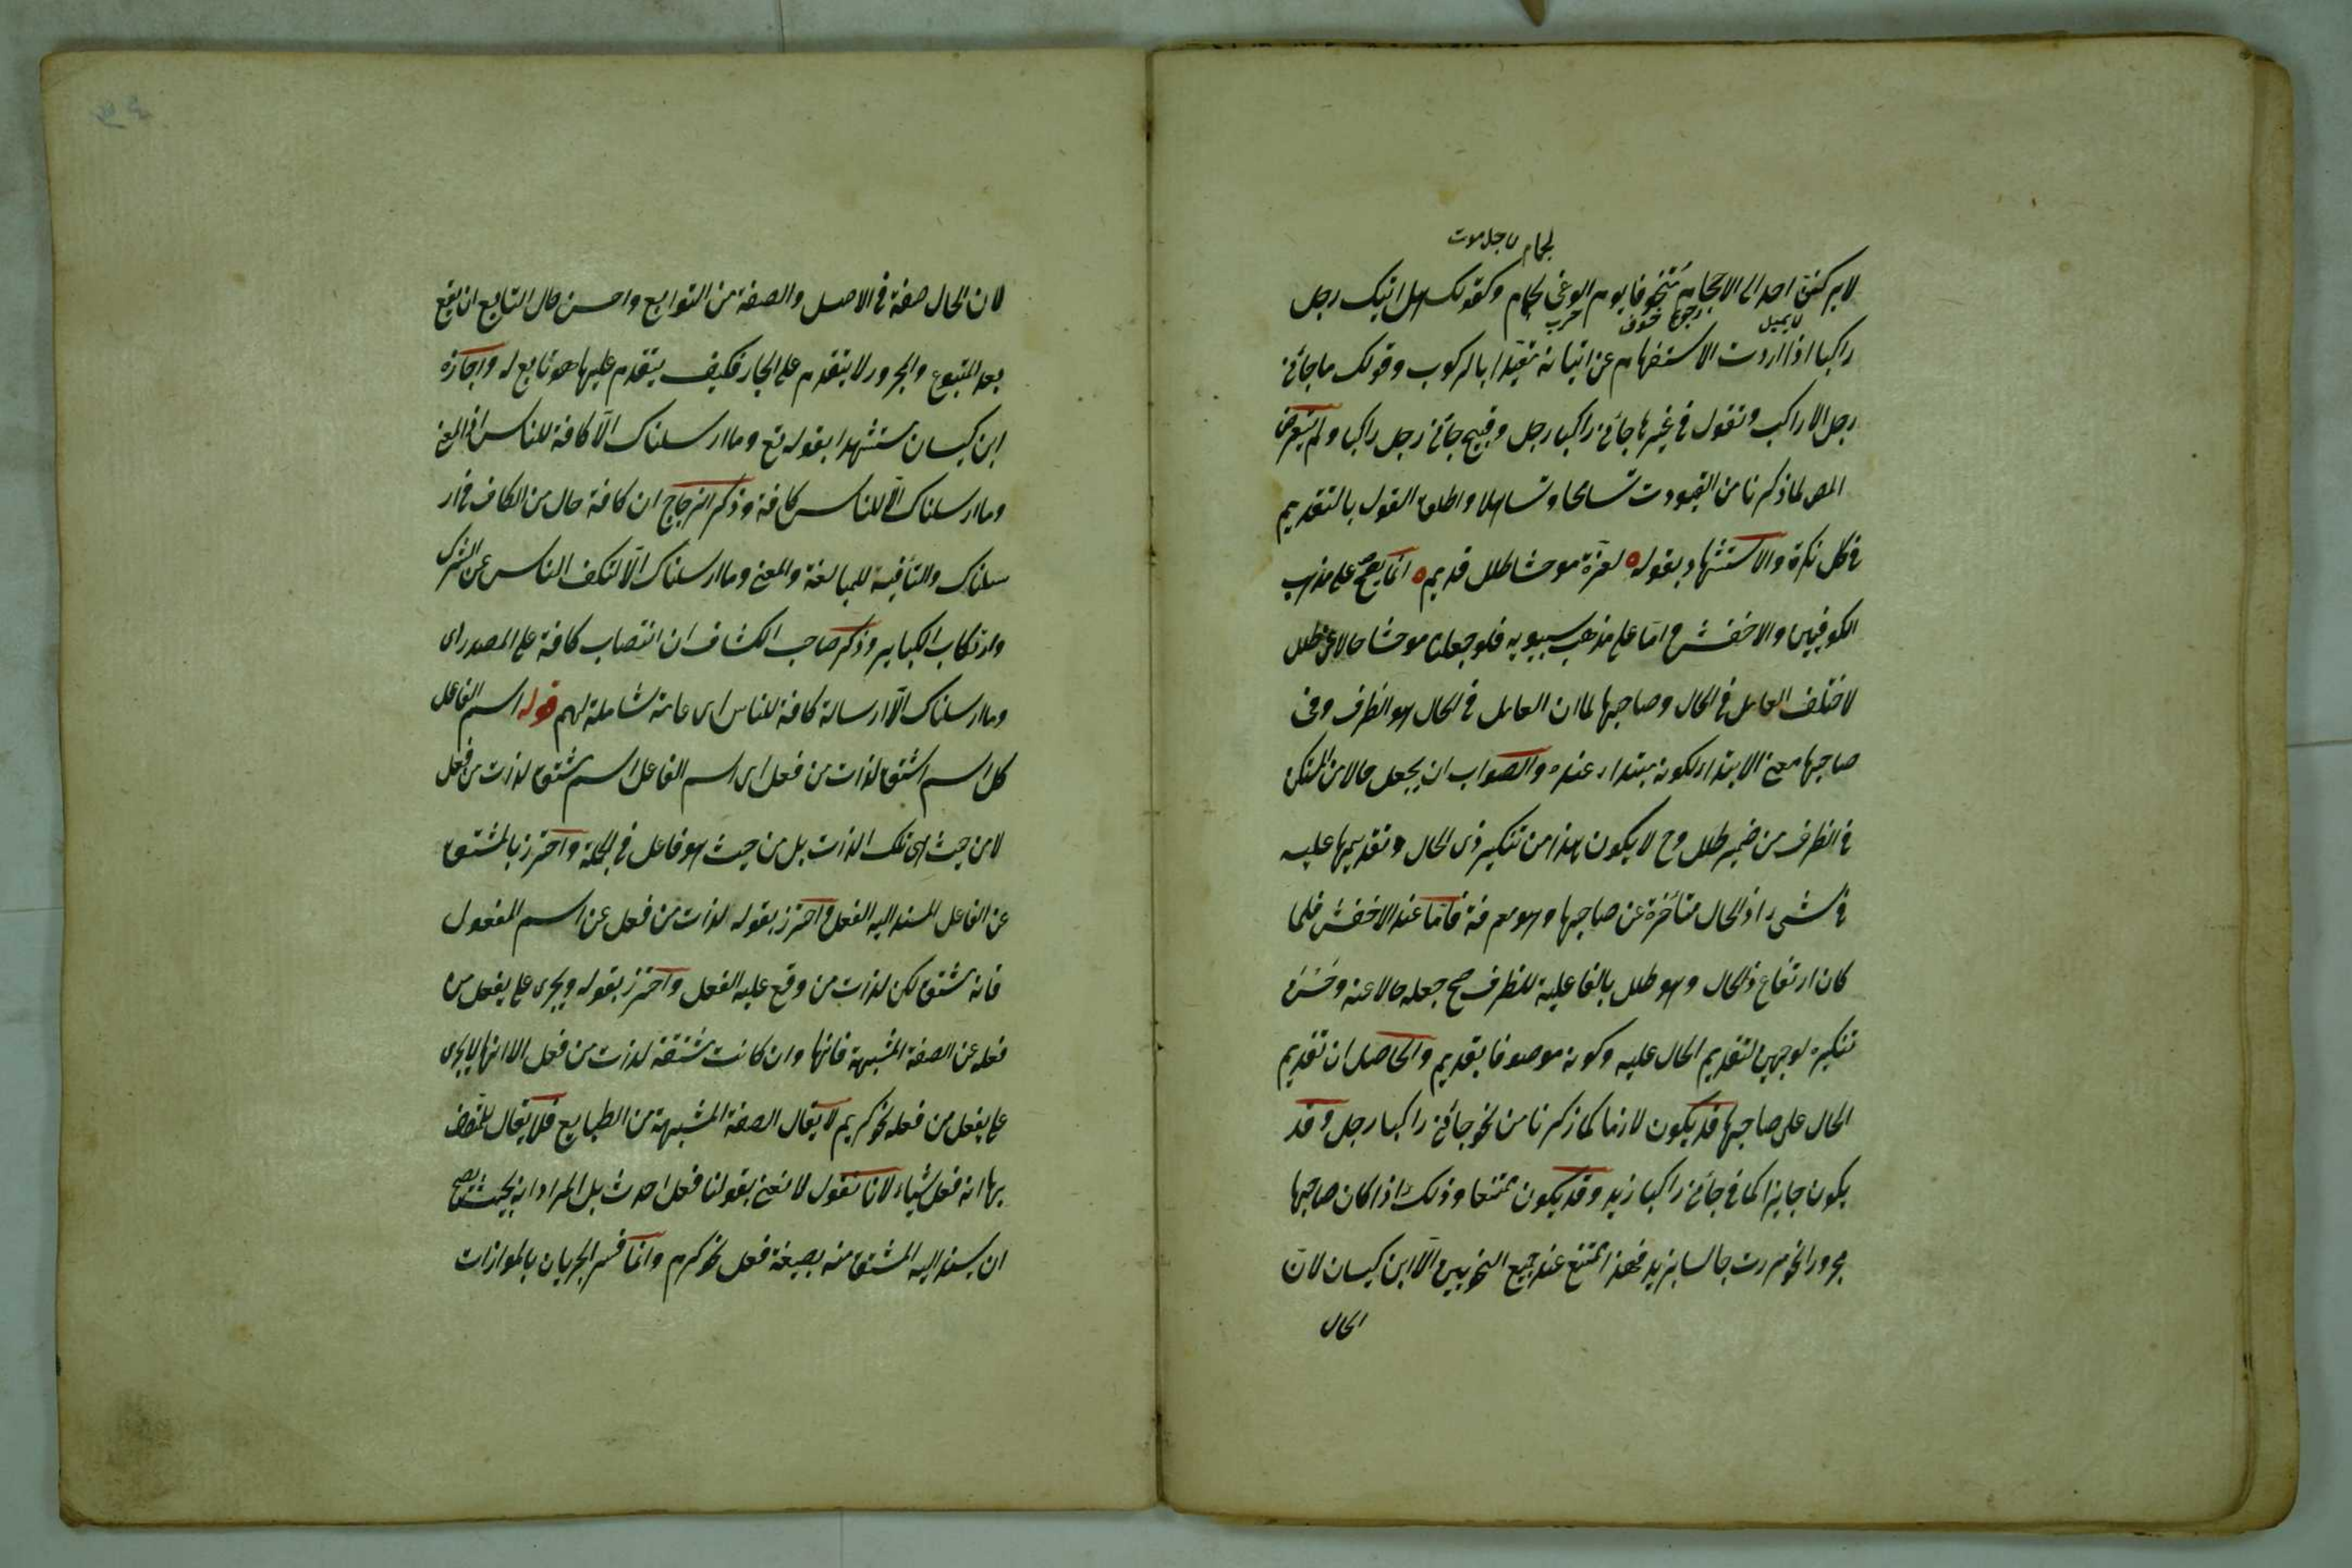 لحمام لاجل موت
لا يركنن احد الى الاحجام متخوفا يوم الوغى لحمام وكقولك هل اتيك رجل
لا يميل رجوع خوف حرب
راكبا اذا اردت الاستفهام عن اتيانه مقيدا بالركوب وقولك ما جائنى
رجل الا راكب وتقول فى غيرها جائنى راكبا رجل وقبيح جائنى رجل راكبا ولم يتعرض
المص لما ذكرنا من القيودت تسامحا وتساهلا واطلق القول بالتقديم
فى كل نكرة والاستشهاد بقوله لعزة موحشا طلل قديم انما يصح على مذهب
الكوفيين والاخفش واما على مذهب سيبويه فلو جعلنا موحشا حالا عن طلل
لاختلف العامل فى الحال وصاحبها لما ان العامل فى الحال هو الظرف وفى
صاحبها معنى الابتداء لكونه مبتداء عنده والصواب ان يجعل حالا من المتكن
فى الظرف من ضمير طلل وح لا يكون هذا من تنكير ذى الحال وتقديمها عليه
فى شىء اذ الحال متأخرة عن صاحبها وهو معرفة فاما عند الاخفش فلما
كان ارتفاع ذى الحال وهو طلل بالفاعلية للظرف صح جعله حالا عنه وحسن
تنكيره لوجهين لتقديم الحال عليه وكونه موصوفا بقديم والحاصل ان تقديم
الحال على صاحبها قد يكون لازما كما ذكرنا من نحو جائنى راكبا رجل وقد
يكون جايزا كما فى جائنى راكبا زيد وقد يكون ممتنعا وذلك اذا كان صاحبها
مجرورا نحو مررت جالسا بزيد فهذا ممتنع عند جميع النحويين الا ابن كيسان لان
الحال
لان الحال صفة فى الاصل والصفة من التوابع واحسن حال التابع ان يقع
بعد المتبوع والمجرور لا يتقدم على الجار فكيف يتقدم عليها هو تابع له واجازه
ابن كيسان مستشهدا بقوله تع وما ارسلناك الا كافة للناس اذ المعنى
وما ارسلناك الا للناس كافة وذكر الزجاج ان كافة حال من الكاف فى ار
سلناك والتانيث للمبالغة والمعنى وما ارسلناك الا لتكف الناس عن الشرك
وارتكاب الكباير وذكر صاحب الكشاف ان انتصاب كافة على المصدر اى
وما ارسلناك الا ارسالة كافة للناس اى عامة شاملة لهم قوله اسم الفاعل
كل اسم اشتق لذات من فعل اى اسم الفاعل اسم مشتق لذات من فعل
لا من حيث هى تلك الذات بل من حيث هو فاعل فى الجملة واحترز بالمشتق
عن الفاعل المسند اليه الفعل واحترز بقوله لذات من فعل عن اسم المفعول
فانه مشتق لكن لذات من وقع عليه الفعل واحترز بقوله ويجرى على يفعل من
فعله عن الصفة المشبهة فانها وان كانت مشتقة لذات من فعل الا انها لا يجرى
على يفعل من فعله نحو كريم لا يقال الصفة المشبهة من الطبايع فلا يقال للمتصف
بها انه فعل شيئا لانا نقول لا نعنى بقولنا فعل احدث بل المراد انه بحيث يصح
ان يسند اليه المشتق منه بصيغة فعل نحو كرم وانما فسر الجريان بالموازات